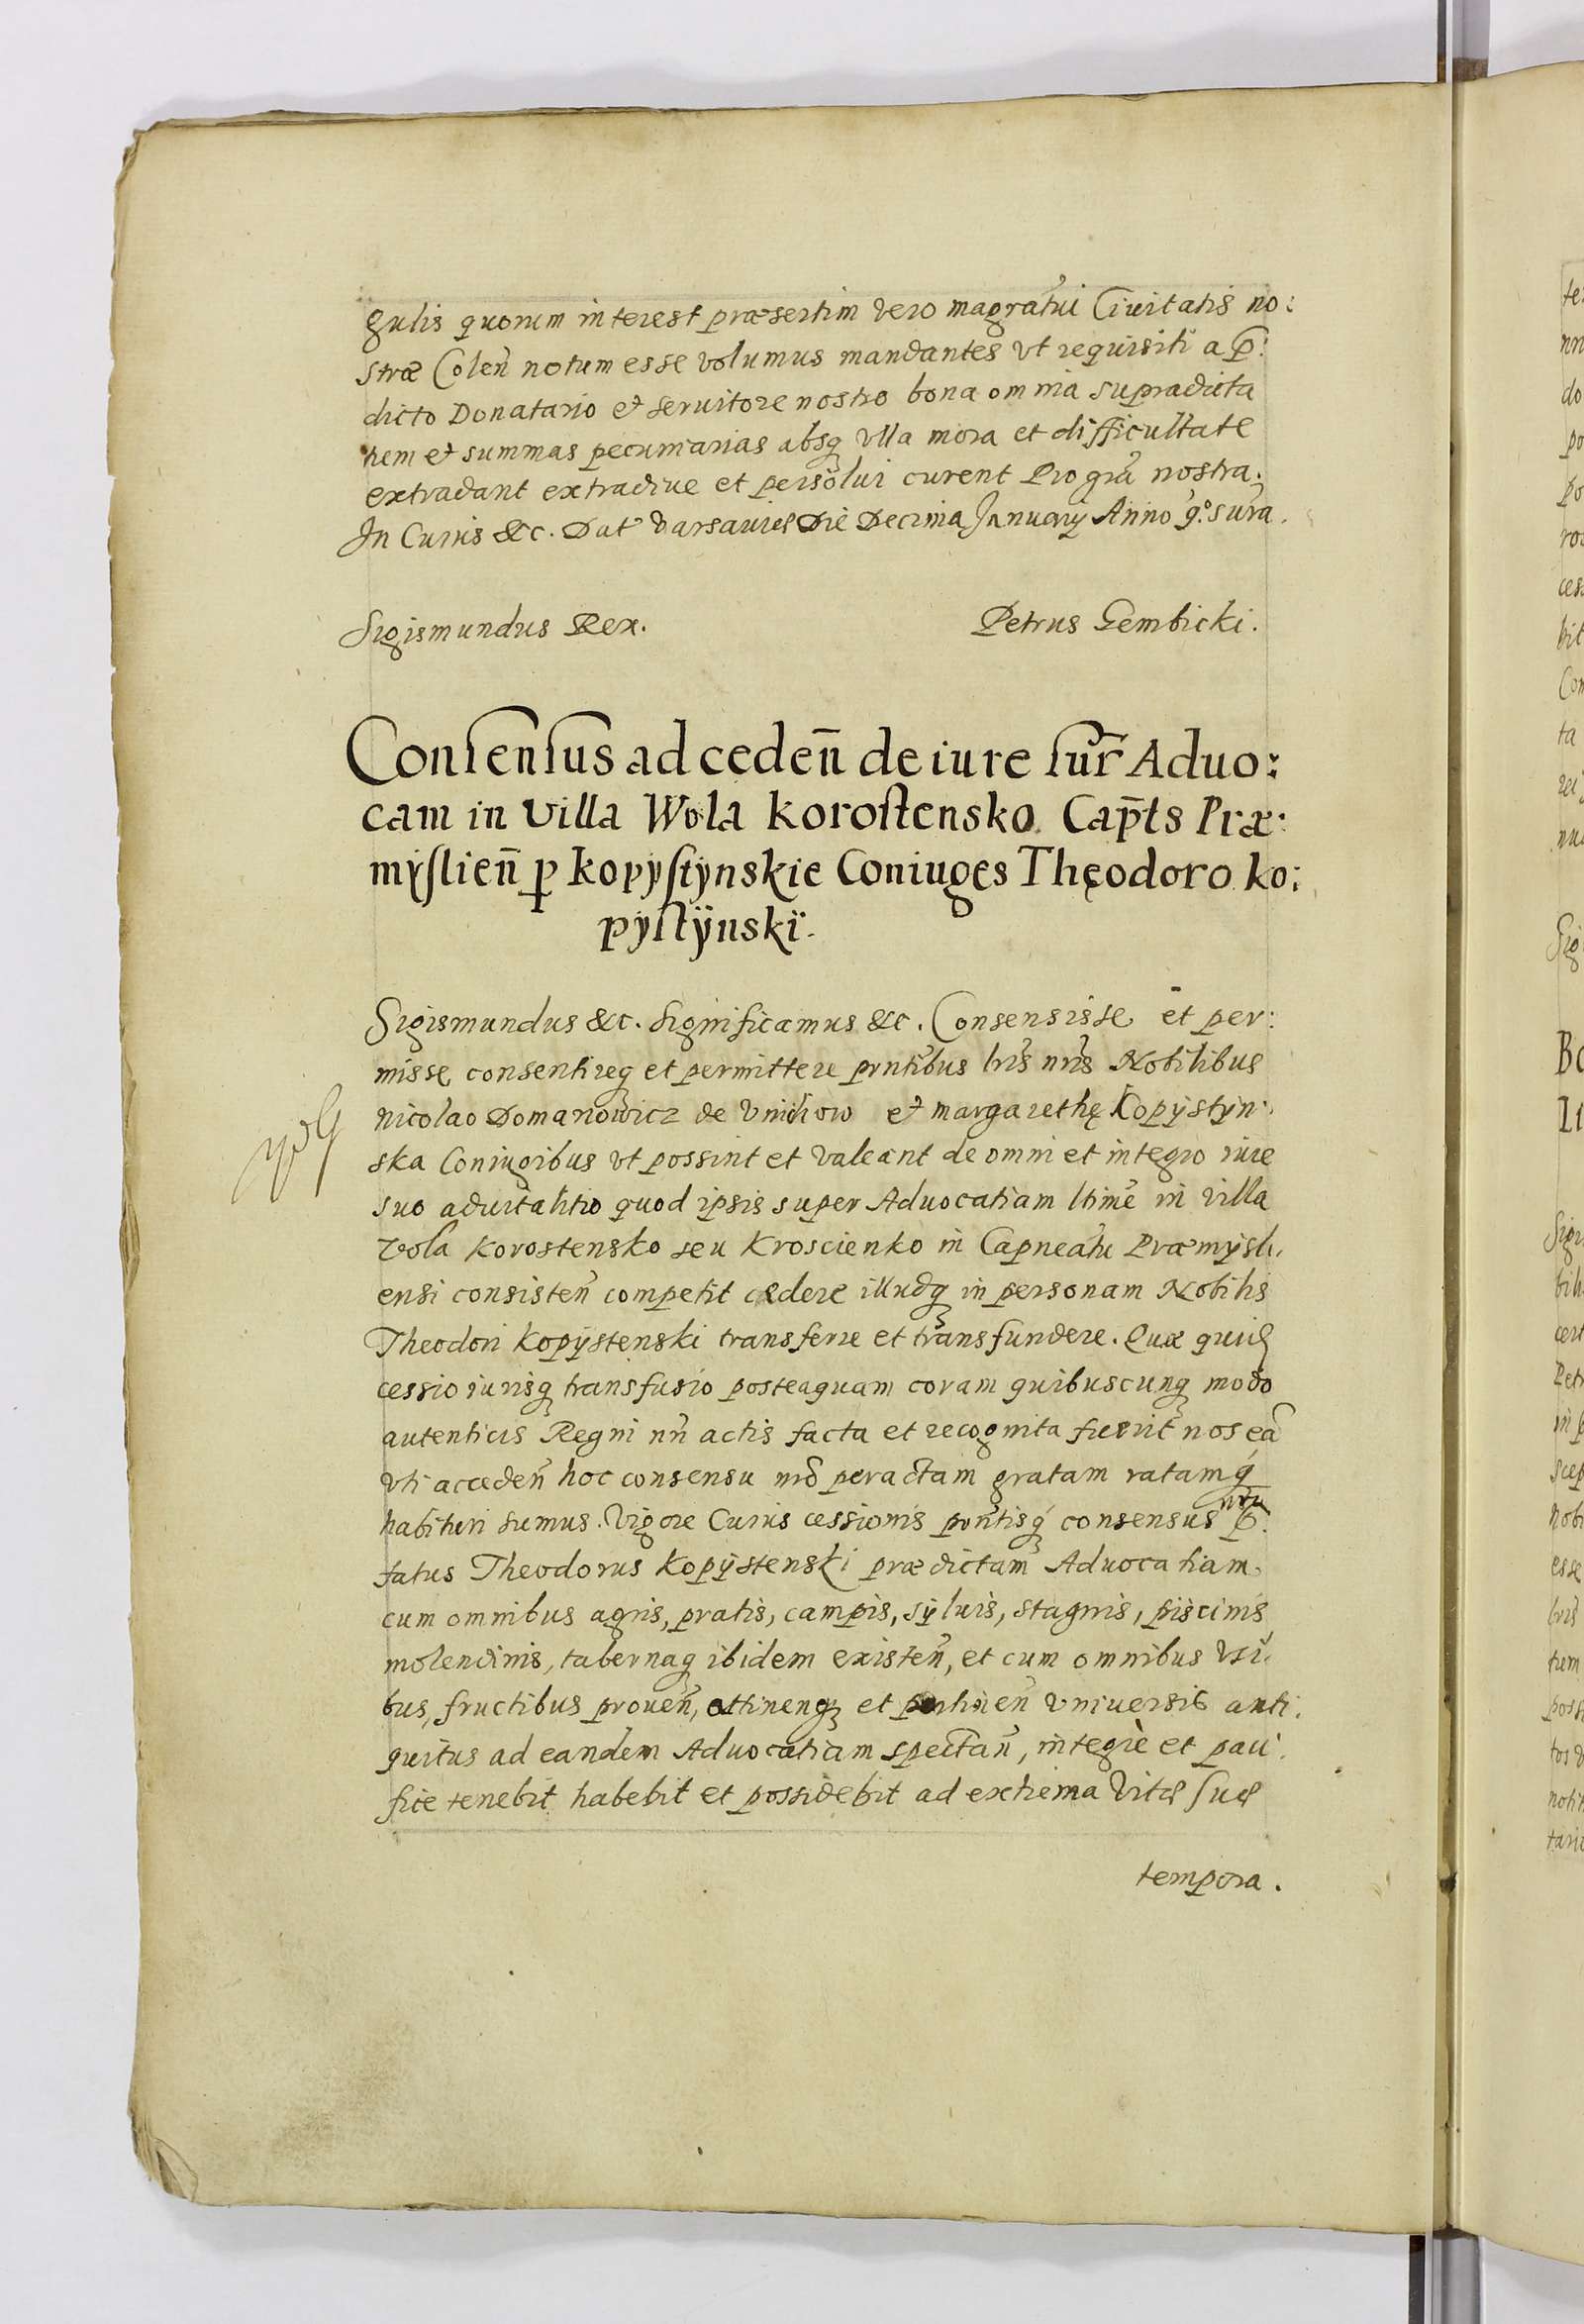 gulis quorum interest præsertim vero magrat̃ui Ciuitatis no:
stræ Coleñ notum esse volumus mandantes vt requisiti a p̃:
dicto Donatario et seruitore nostro bona omnia supradicta
nem et summas pecuniarias absq̨ vlla mora et difficultate
extradant extradiue et persolui curent Pro gr̃a nostra.
In Cuius &c. Dat̃ Varsauiæ Die Decima Januarij Anno q̃.º sũra.
Sigismundus Rex.
Petrus Gembicki.
Consensus ad cedeñ de iure sur̃ Aduo:
cam in Villa Wola Korostensko. Cap̃ts Præ:
mÿslieñ ꝑ Kopÿstÿnskie Coniuges Thęodoro Ko:
pÿstÿnskï.
Sigismundus &c. Significamus &c. Consensisse et per:
misse consentireq̨ et permittere prntib̃us lr̃is nr̃is Nobilibus
Nicolao Domanowicz de Vnichow et Margarethę Kopÿstÿn:
ska Coniugibus vt possint et valeant de omni et integro iure
suo aduitalitio quod ipsis super Aduocatiam ltim̃e in villa
Vola Korostensko seu Kroscienko in Capneat̃u Præmÿsli,
ensi consisteñ competit cædere illudq̨ in personam Nobilis
Theodori Kopÿstenski transferre et transfundere. Quæ quid̨
cessio iurisq̨ transfusio posteaquam coram quibuscunq̨ modo
autenticis Regni nr̃i actis facta et recognita fuerit nos eã
vti accedeñ hoc consensu nr̃o peractam gratam ratamq̨
habituri sumus. Vigore Cuius cessionis prñtisq̨ consensus nr̃i p̃:
fatus Theodorus Kopÿstenski prædictam Aduocatiam.
cum omnibus agris, pratis, campis, sÿluis, stagnis, piscinis
molendinis, tabernaq̨ ibidem existeñ, et cum omnibus Vsi,
bus, fructibus proueñ, attinenq̨ et pertineñ vniuersis anti,
quitus ad eandem Aduocatiam spectañ, integrè et paci,
fice tenebit habebit et possidebit ad extrema Vitæ suæ
tempora.